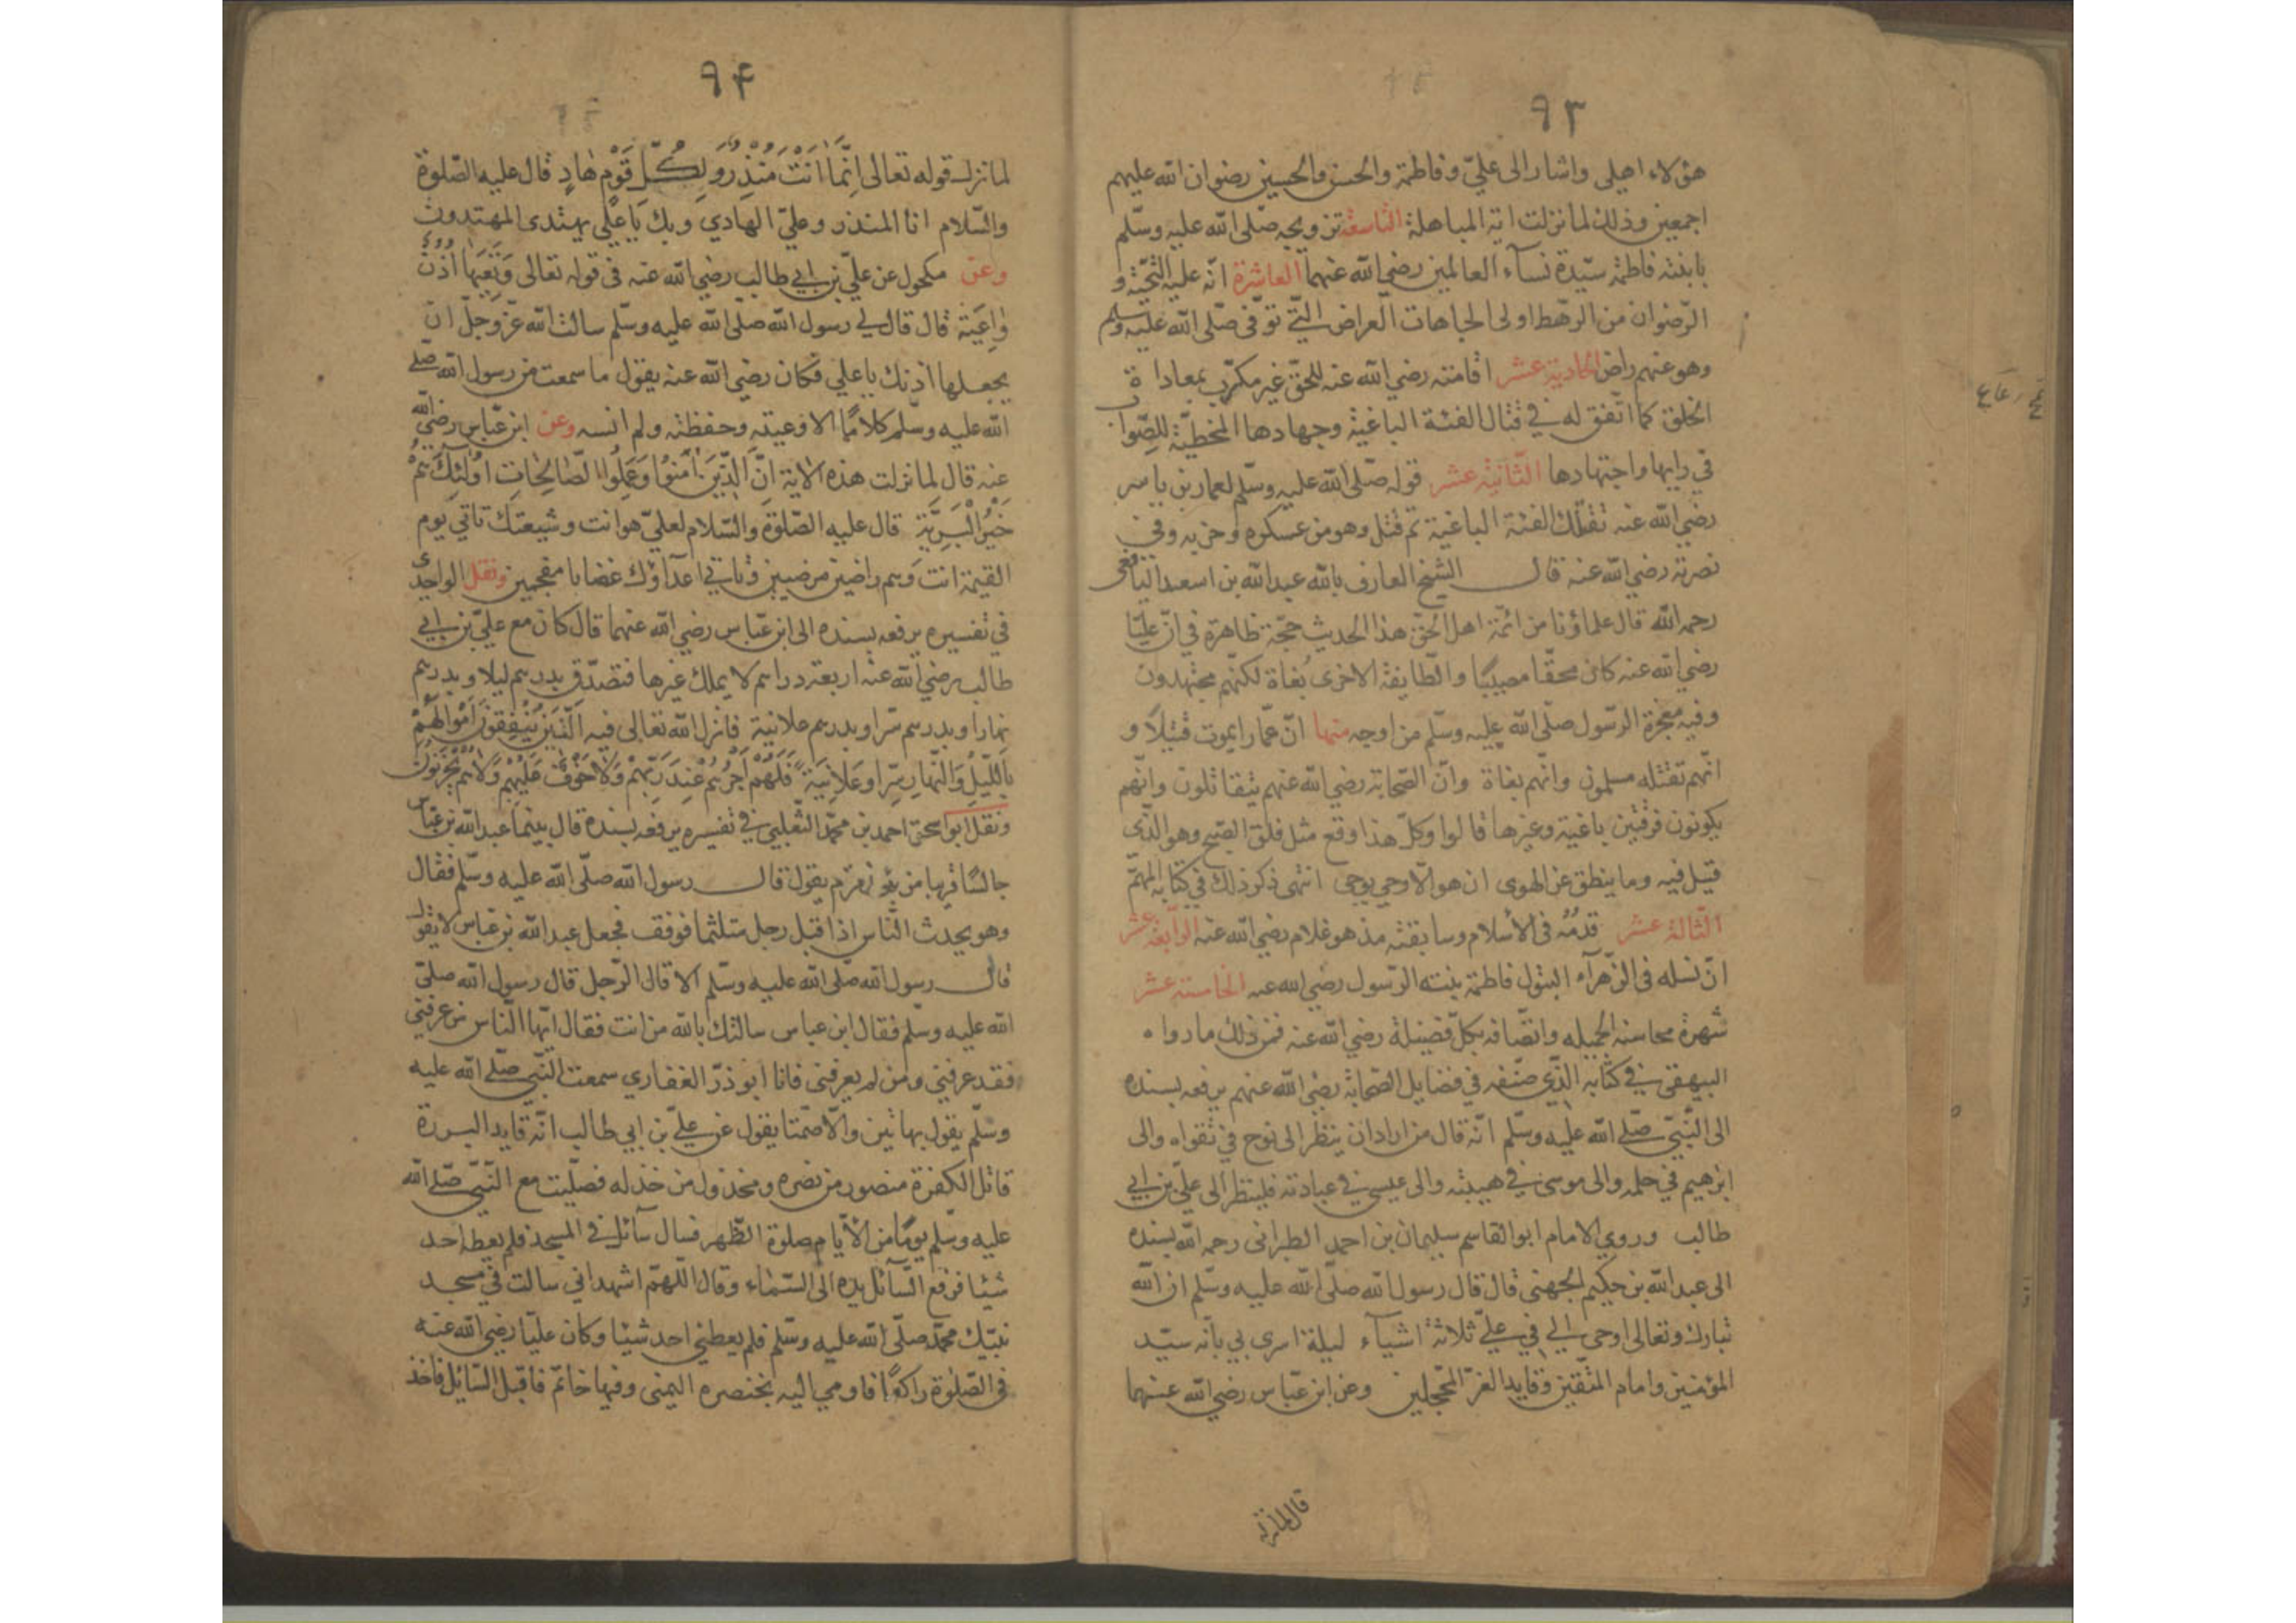 ٩٣
هؤلاء اهلى واشار الى عليّ وفاطمة والحسن والحسين رضوان الله عليهم
اجمعين وذلك لما نزلت اية المباهلة التاسعة تزويجه صلّى الله عليه وسلّم
بابنته فاطمة سيّدة نسآء العالمين رضي الله عنهما العاشرة انّه عليه التحيّة و
الرّضوان من الرّهط اولى الجاهات العراض الّتي توفّى صلّى الله عليه وسلم
وهو عنهم راض الحادية عشر اقامته رضي الله عنه للحقّ غير مكترث بمعاداة
الخلق كما اتّفق له في قتال الفئة الباغية وجهادها المخطيّة للصّواب
في رايها واجتهادها الثّانية عشر قوله صلّى الله عليه وسلّم لعمار بن ياسر
رضي الله عنه تقتلك الفئة الباغية ثم قتل وهو من عسكره وحزبه وفي
نصرته رضي الله عنه قال الشيخ العارف بالله عبد الله بن اسعد اليافعى
رحمه الله قال علماؤنا من ائمّة اهل الحقّ هذا الحديث حجّة ظاهرة في انّ عليّا
رضي الله عنه كان محقّا مصيبًا والطّايفة الاخرى بُغاة لكنّهم مجتهدون
وفيه معجزة الرّسول صلّى الله عليه وسلّم من اوجه منها انّ عمّارا يموت قتيلًا و
انّهم تقتله مسلمون وانّهم بغاة وانّ الصّحابة رضي الله عنهم يتقاتلون وانّهم
يكونون فرقتين باغية وغيرها قالوا وكلّ هذا وقع مثل فلق الصّبح وهو الّذى
قيل فيه وما ينطق عن الهوى ان هو الّا وحي يوحى انتهى ذكر ذلك في كتابه المهمّ
الثّالثة عشر قدمُه فى الأسلام وسابقته مذ هو غلام رضي الله عنه الرّابعة عشر
انّ نسله فى الزّهرآء البتول فاطمة بنته الرّسول رضي الله عنه الخامسة عشر
شهرة محاسنه الجميله واتّصافه بكلّ فضيلة رضي الله عنه فمن ذلك ما رواه
البيهقى في كتابه الّذي صنّفه في فضايل الصّحابة رضي الله عنهم يرفعه بسنده
الى النّبيّ صلّى الله عليه وسلّم انّه قال من اراد ان ينظر الى نوح في تقواه والى
ابرهيم في حلمه والى موسى في هيبته والى عيسى في عبادته فلينظر الى عليّ بن ابي
طالب وروي الامام ابو القاسم سليمان بن احمد الطبرانى رحمه الله بسنده
الى عبد الله بن حكيم الجهني قال قال رسول الله صلّى الله عليه وسلّم ان الله
تبارك وتعالى اوحى الي في عليّ ثلاثة اشيآء ليلة اسرى بي بانّه سيّد
المؤمنين وامام المتّقين وقايد الغرّ المحجّلين وعن ابن عبّاس رضي الله عنهما
قال لما نزلت
٩٤
لما نزلت قوله تعالى اِنَّمَا اَنْتَ مُنْذِرٌ وَلِكُلِّ قَوْمٍ هَادٍ قال عليه الصّلوة
والسّلام انا المنذر وعليّ الهادي وبك يا علي يهتدى المهتدون
وعن مكحول عن عليّ بن ابي طالب رضي الله عنه فى قوله تعالى وَتَعِيَهَا اُذُنٌ
وَاعِيَة قال قال لي رسول الله صلّى الله عليه وسلّم سالت الله عزّ وجلّ ان
يجعلها اذنك يا علي فكان رضي الله عنه يقول ما سمعت من رسول الله صلّى
الله عليه وسلّم كلامًا الا وعيته وحفظته ولم انسه وعن ابن عبّاس رضي الله
عنه قال لما نزلت هذه الاية اِنَّ الَّذِينَ اٰمَنُوا وَعَمِلُوا الصَّالِحَاتِ اُولٰئِكَ هُمْ
خَيْرُ الْبَرِيَّةِ قال عليه الصّلوة والسّلام لعليّ هو انت وشيعتك تاتي يوم
القيمة انت وهم راضين مرضيين وتاتي اعدآؤك غضابا مقمحين ونقل الواحدى
في تفسيره يرفعه بسنده الى ابن عبّاس رضي الله عنهما قال كان مع عليّ بن ابي
طالب رضي الله عنه اربعة دراهم لا يملك غيرها فتصدّق بدرهم ليلا وبدرهم
نهارا وبدرهم سّرا وبدرهم علانية فانزل الله تعالى فيه اَلَّذِينَ يُنْفِقُونَ اَمْوَالَهُمْ
بِاللَّيْلِ وَالنَّهَارِ سِرّا وعَلَانِيَةً فَلَهُمْ اَجْرُهُمْ عِنْدَ رَبِّهِمْ وَلَا خَوْفٌ عَلَيْهِمْ وَلَا هُمْ يَحْزَنُونَ
ونقل ابو اسحق احمد بن محمّد الثّعلبي في تفسيره يرفعه بسنده قال بينما عبد الله بن عبّاس
جالسًا قريبا من بئر زمزم يقول قال رسول الله صلّى الله عليه وسلّم فقال
وهو يحدث النّاس اذا قبل رجل متلثّما فوقف فجعل عبد الله بن عبّاس لا يقول
قال رسول الله صلّى الله عليه وسلّم الا قال الرّجل قال رسول الله صلّى
الله عليه وسلّم فقال ابن عباس سالتك بالله من انت فقال ايّها النّاس من عرفني
فقد عرفني ومن لم يعرفنى فانا ابو ذرّ الغفاري سمعت النّبيّ صلّى الله عليه
وسلّم يقول بهاتين والّا صمّتا يقول عن عليّ بن ابي طالب انّه قايد البررة
قاتل الكفرة منصور من نصره ومخذول من خذله فصلّيت مع النّبيّ صلّى الله
عليه وسلّم يومًا من الأيّام صلوة الظّهر فسال سآئل في المسجد فلم يعطه احد
شيئا فرفع السّآئل يده الى السّماء وقال اللّهمّ اشهد اني سالت في مسجد
نبيّك محمّد صلّى الله عليه وسلّم فلم يعطني احد شيئا وكان عليّا رضي الله عنه
فى الصّلوة راكعًا فاومي اليه بخنصره اليمنى وفيها خاتم فاقبل السّائل فاخذ